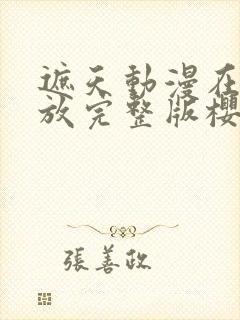 遮天動漫在
放完整版櫻
張善政